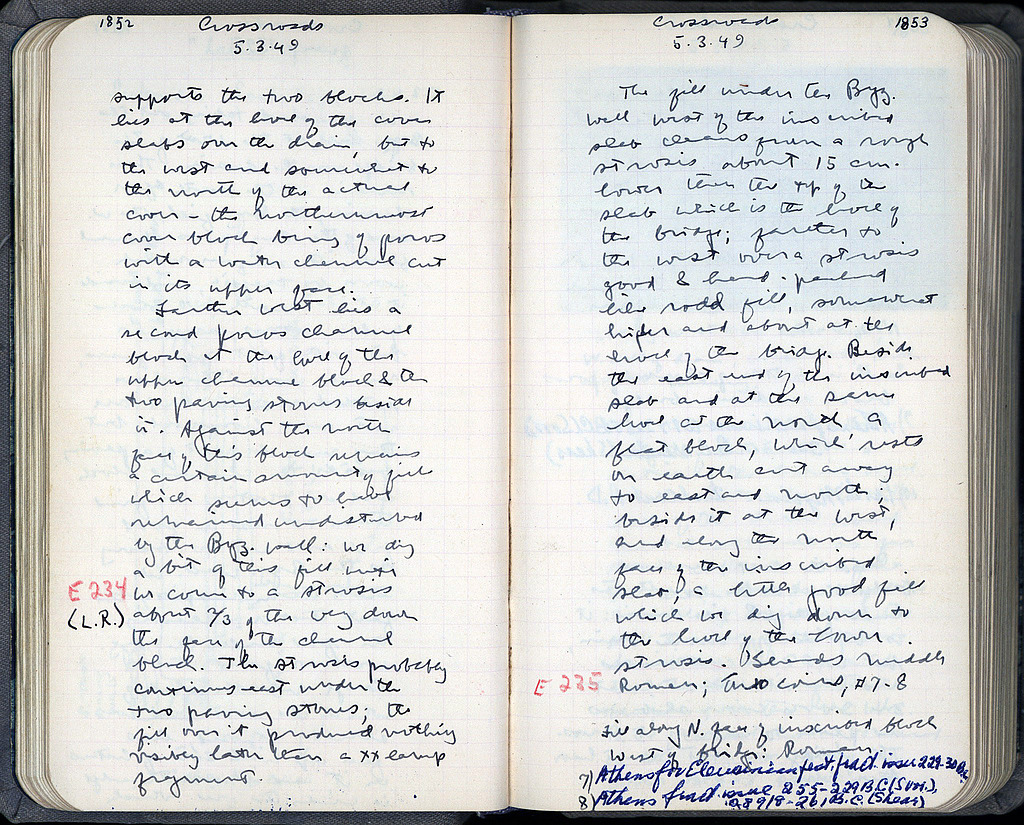 1852 Crossroads
5.3.49
supports the two blocks. It
lies at the level of the cover
slabs over the drain, but to
the west and somewhat to
the north of the actual
cover – the northernmost
cover block being of poros
with a water channel cut
in its upper face.
Farther west lies a
second poros channel
block at the level of the
upper channel block & the
two paving stones beside
it. Against the north
face of this block remains
a certain amount of fill
which seems to have
remained undisturbed
by the Byz. wall: we dig
a bit of this fill until
E 234 we come to a strosis
(L.R.) about 2/3 of the way down
the face of the channel
block. The strosis probably
continues east under the
two paving stones; the
fill over it produced nothing
visibly later than a XX lamp
fragment.
Crossroads 1853
5.3.49
The fill under the Byz.
wall west of the inscribed
slab cleans from a rough
strosis about 15 cm.
lower than the top of the
slab which is the level of
the bridge; farther to
the west over a strosis
good & hard-packed
like road fill, somewhat
higher and about at the
level of the bridge. Beside
the east end of the inscribed
slab and at the same
level at the north a
flat block, which rests
on earth cut away
to east and north;
beside it at the west,
and along the north
face of the inscribed
slab, a little good fill
which we dig down to
the level of the lower
strosis. Seems middle
E 235 Roman; two coins, #7-8
fill along N. face of inscribed block
west of bridge: Roman
7) Athens for Eleusinian fest. fract. issue 229-30 B.C.
8) Athens fract. issue 255-229 B.C. (Svor.),
289/8-261 B.C. (Shear)